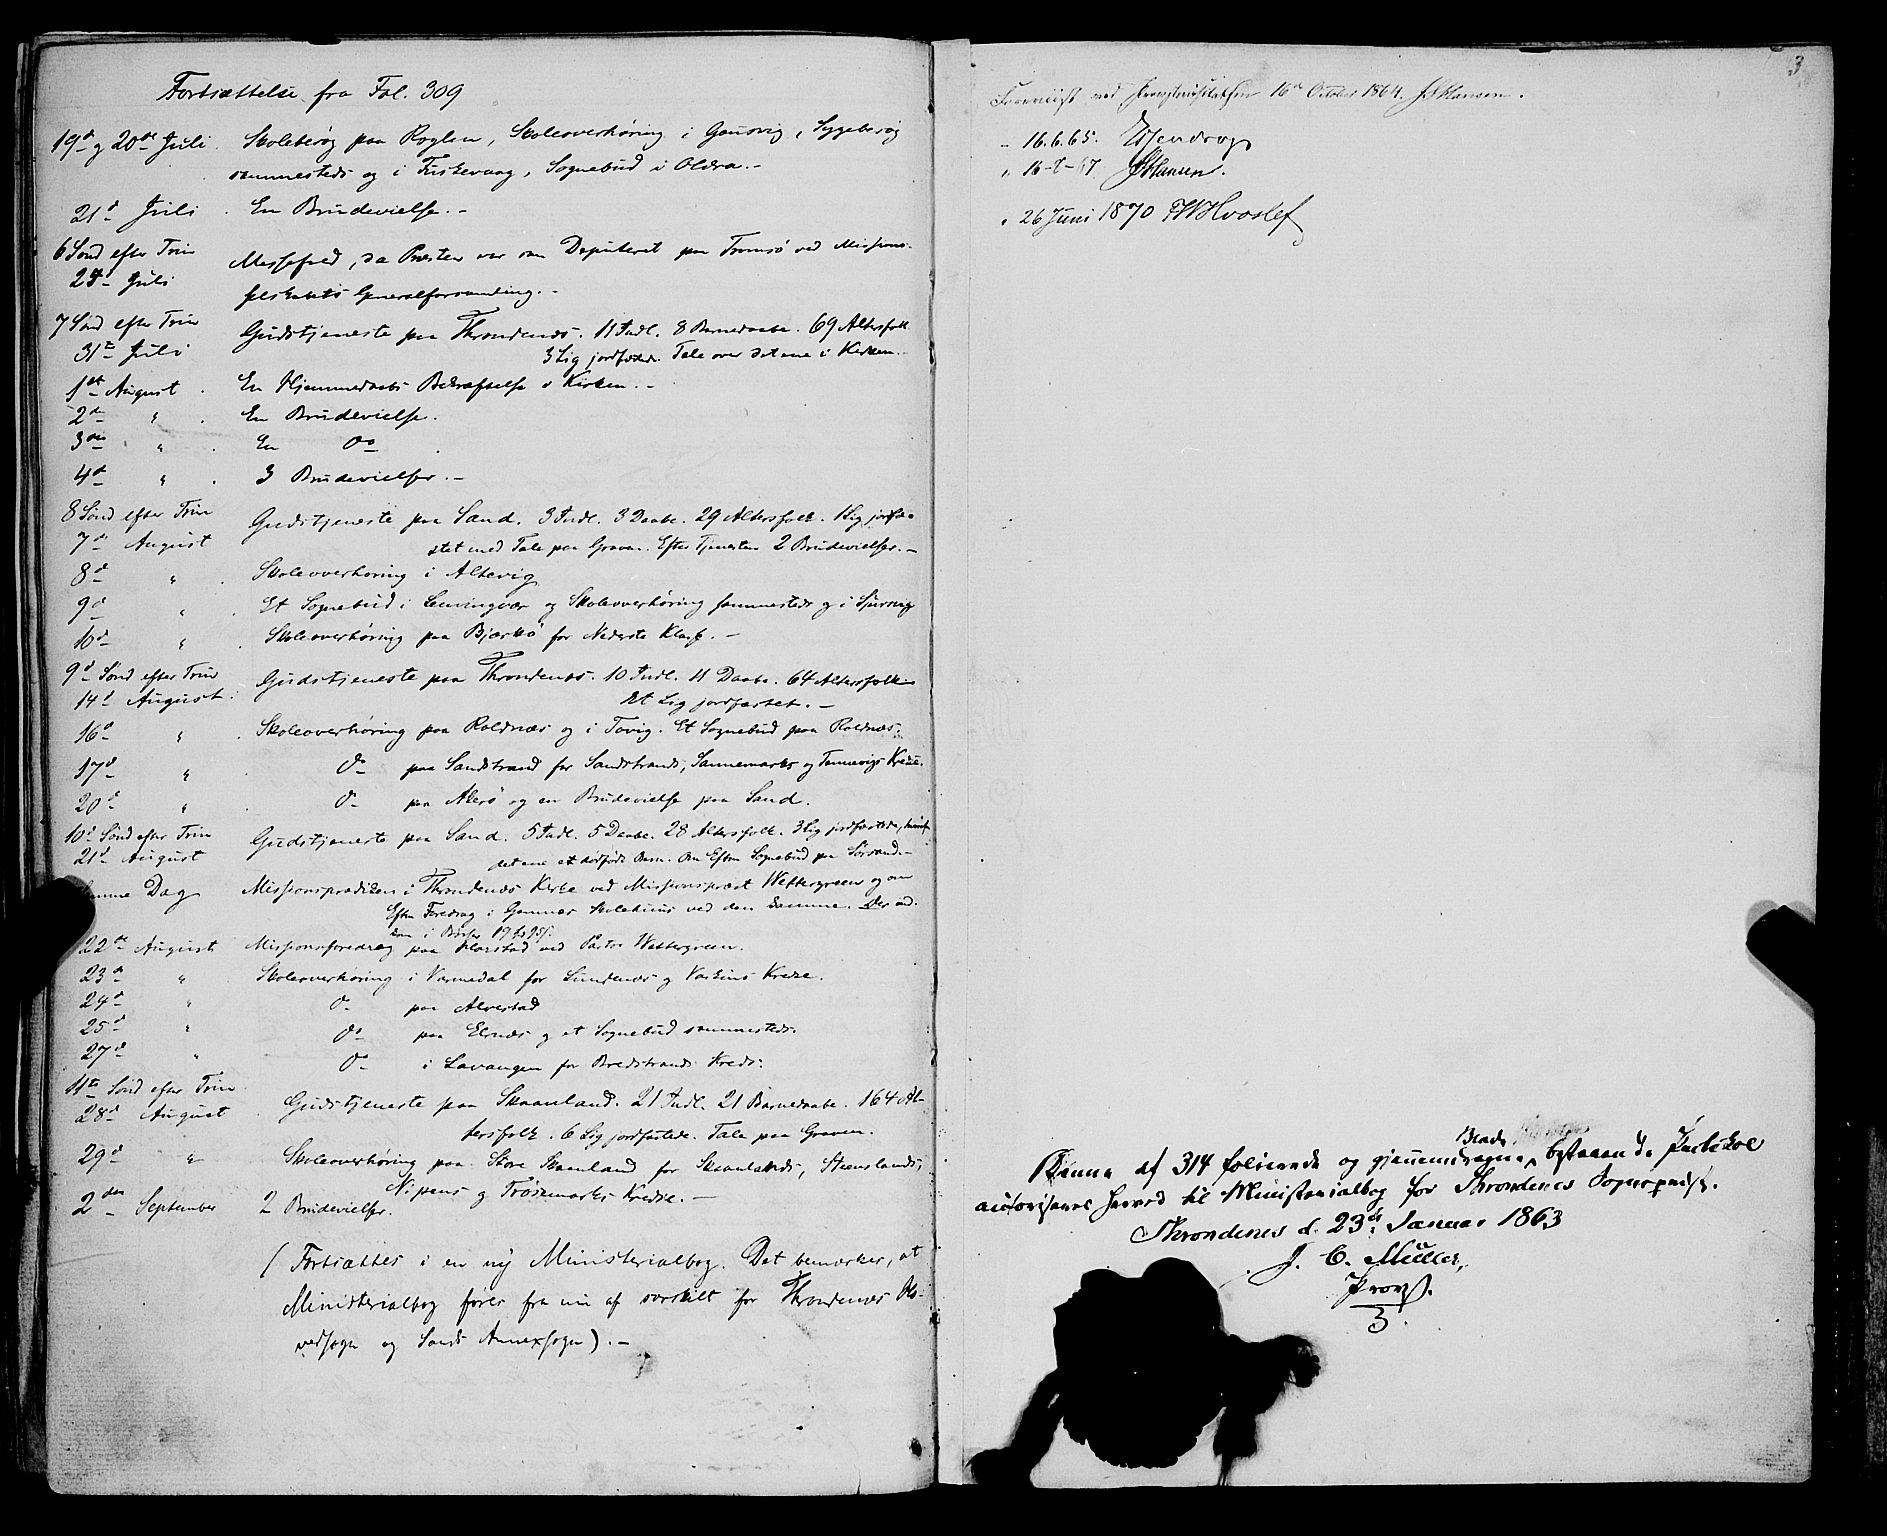 Fortsættelse fra Fol. 309
19de og 20de Juli. Skolebesøg paa Røglen, Skoleoverhøring i Gausvig, Sygebesøg
sammesteds og i Fiskevaag, Sognebud i Oldra.-
21de Juli. En Brudevielse.-
6 Sønd efter Trin Messefald, da Præsten var som Deputeret paa Tromsø ved Missions-
24de Juli selskabets Generalforsamling.-
7 Sønd efter Trin Gudstjeneste paa Throndenæs. 11 Indl. 8 Barnedaabe. 69 Altersfolk
31te Juli 3 Lig jordfæstede. Tale over det ene i Kirken.-
1ste August. En Hjemmedaabs Bekræftelse i Kirken.-
2den " . En Brudevielse.
3die " . En Do .
4de " . 3 Brudevielser.-
8 Sønd efter Trin Gudstjeneste paa Sand. 3 Indl. 3 Daabe. 29 Altersfolk. 1 Lig jordfæ-
7de August stet med Tale paa Graven. Efter Tjenesten 2 Brudevielser.-
8de " . Skoleoverhøring i Altevig
9de " . Et Sognebud i Lemingvær og Skoleoverhøring sammesteds og i
10de " . Skoleoverhøring paa Bjærkø for Nederste Klasse.-
9de Sønd efter Trin Gudstjeneste paa Throndenæs. 10 Indl. 11 Daabe. 64 Altersfolk
14de August. Et Lig jordfæstet.-
16de " . Skoleoverhøring paa Roldnæs og i Tovig. Et Sognebud paa Roldnæs.
17de " . Do paa Sandstrand for Sandstrands, Sannemarks og Tennevigs Kredse.
20de " . Do paa Akerø og en Brudevielse paa Sand.
10de Sønd efter Trin Gudstjeneste paa Sand. 5 Indl. 5 Daabe. 28 Altersfolk. 3 Lig jordfæstede, hvoraf
21de August det ene et dødfødt Barn. Om Eftm Sognebud paa Sørsand.-
Samme Dag Missionsprædiken i Throndenæs Kirke ved Missionspræst Wettergreen og om
Eftm Foredrag i Gannæs Skolehuus ved den samme. Der ud-
kom i Bøsser
22de August Missionsforedrag paa Harstad ved Pastor Wettergreen.
23de " Skoleoverhøring i Varmedal for Lundenæs og Voktins Kredse.
24de " Do paa Alvestad
25de " Do paa Elnæs og et Sognebud sammesteds.
27de " Do i Lavangen for Bredstrands Kreds.
11te Sønd efter Trin Gudstjeneste paa Skaanland. 21 Indl. 21 Barnedaabe. 164 Al-
28de August . tersfolk. 6 Lig jordfæstede. Tale paa Graven.
29de " Skoleoverhøring paa Store Skaanland for Skaanlands, Steenslands,
Nipens og Trøsemarks Kredse.-
2den September 2 Brudevielser.
(Fortsættes i en ny Ministerialbog. Det bemærkes, at
Ministerialbog føres fra nu af særskilt for Throndenæs Ho-
vedsogn og Sands Annexsogn).-
3
Foreviist ved Provstevisitatsen 16de October 1864. JHansen.
" 16.6.65.
" 16-8-67. JHansen.
" 26 Juni 1870 FWHvoslef
Denne af 314 folierede og gjennemdragne Blade bestaaende Protokol
autoriseres herved til Ministerialbog for Throndenes Sognepræst.
Throndenes d. 23de Januar 1863
J. C. Müller,
Provst.